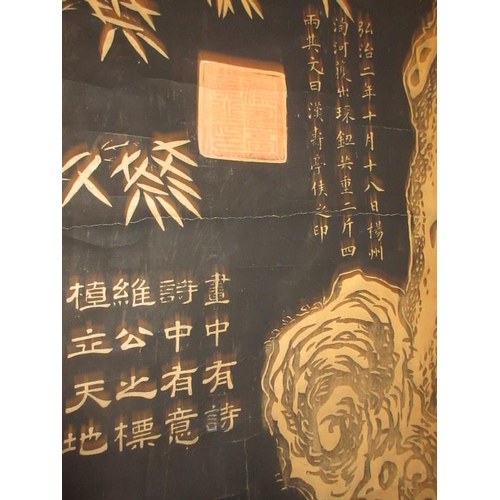 弘治二年十月十八日楊州
淘河獲出環鈕其重二斤四
兩其文曰漢壽亭侯之印
畫中有詩
詩中有意
維公之標
植立天地